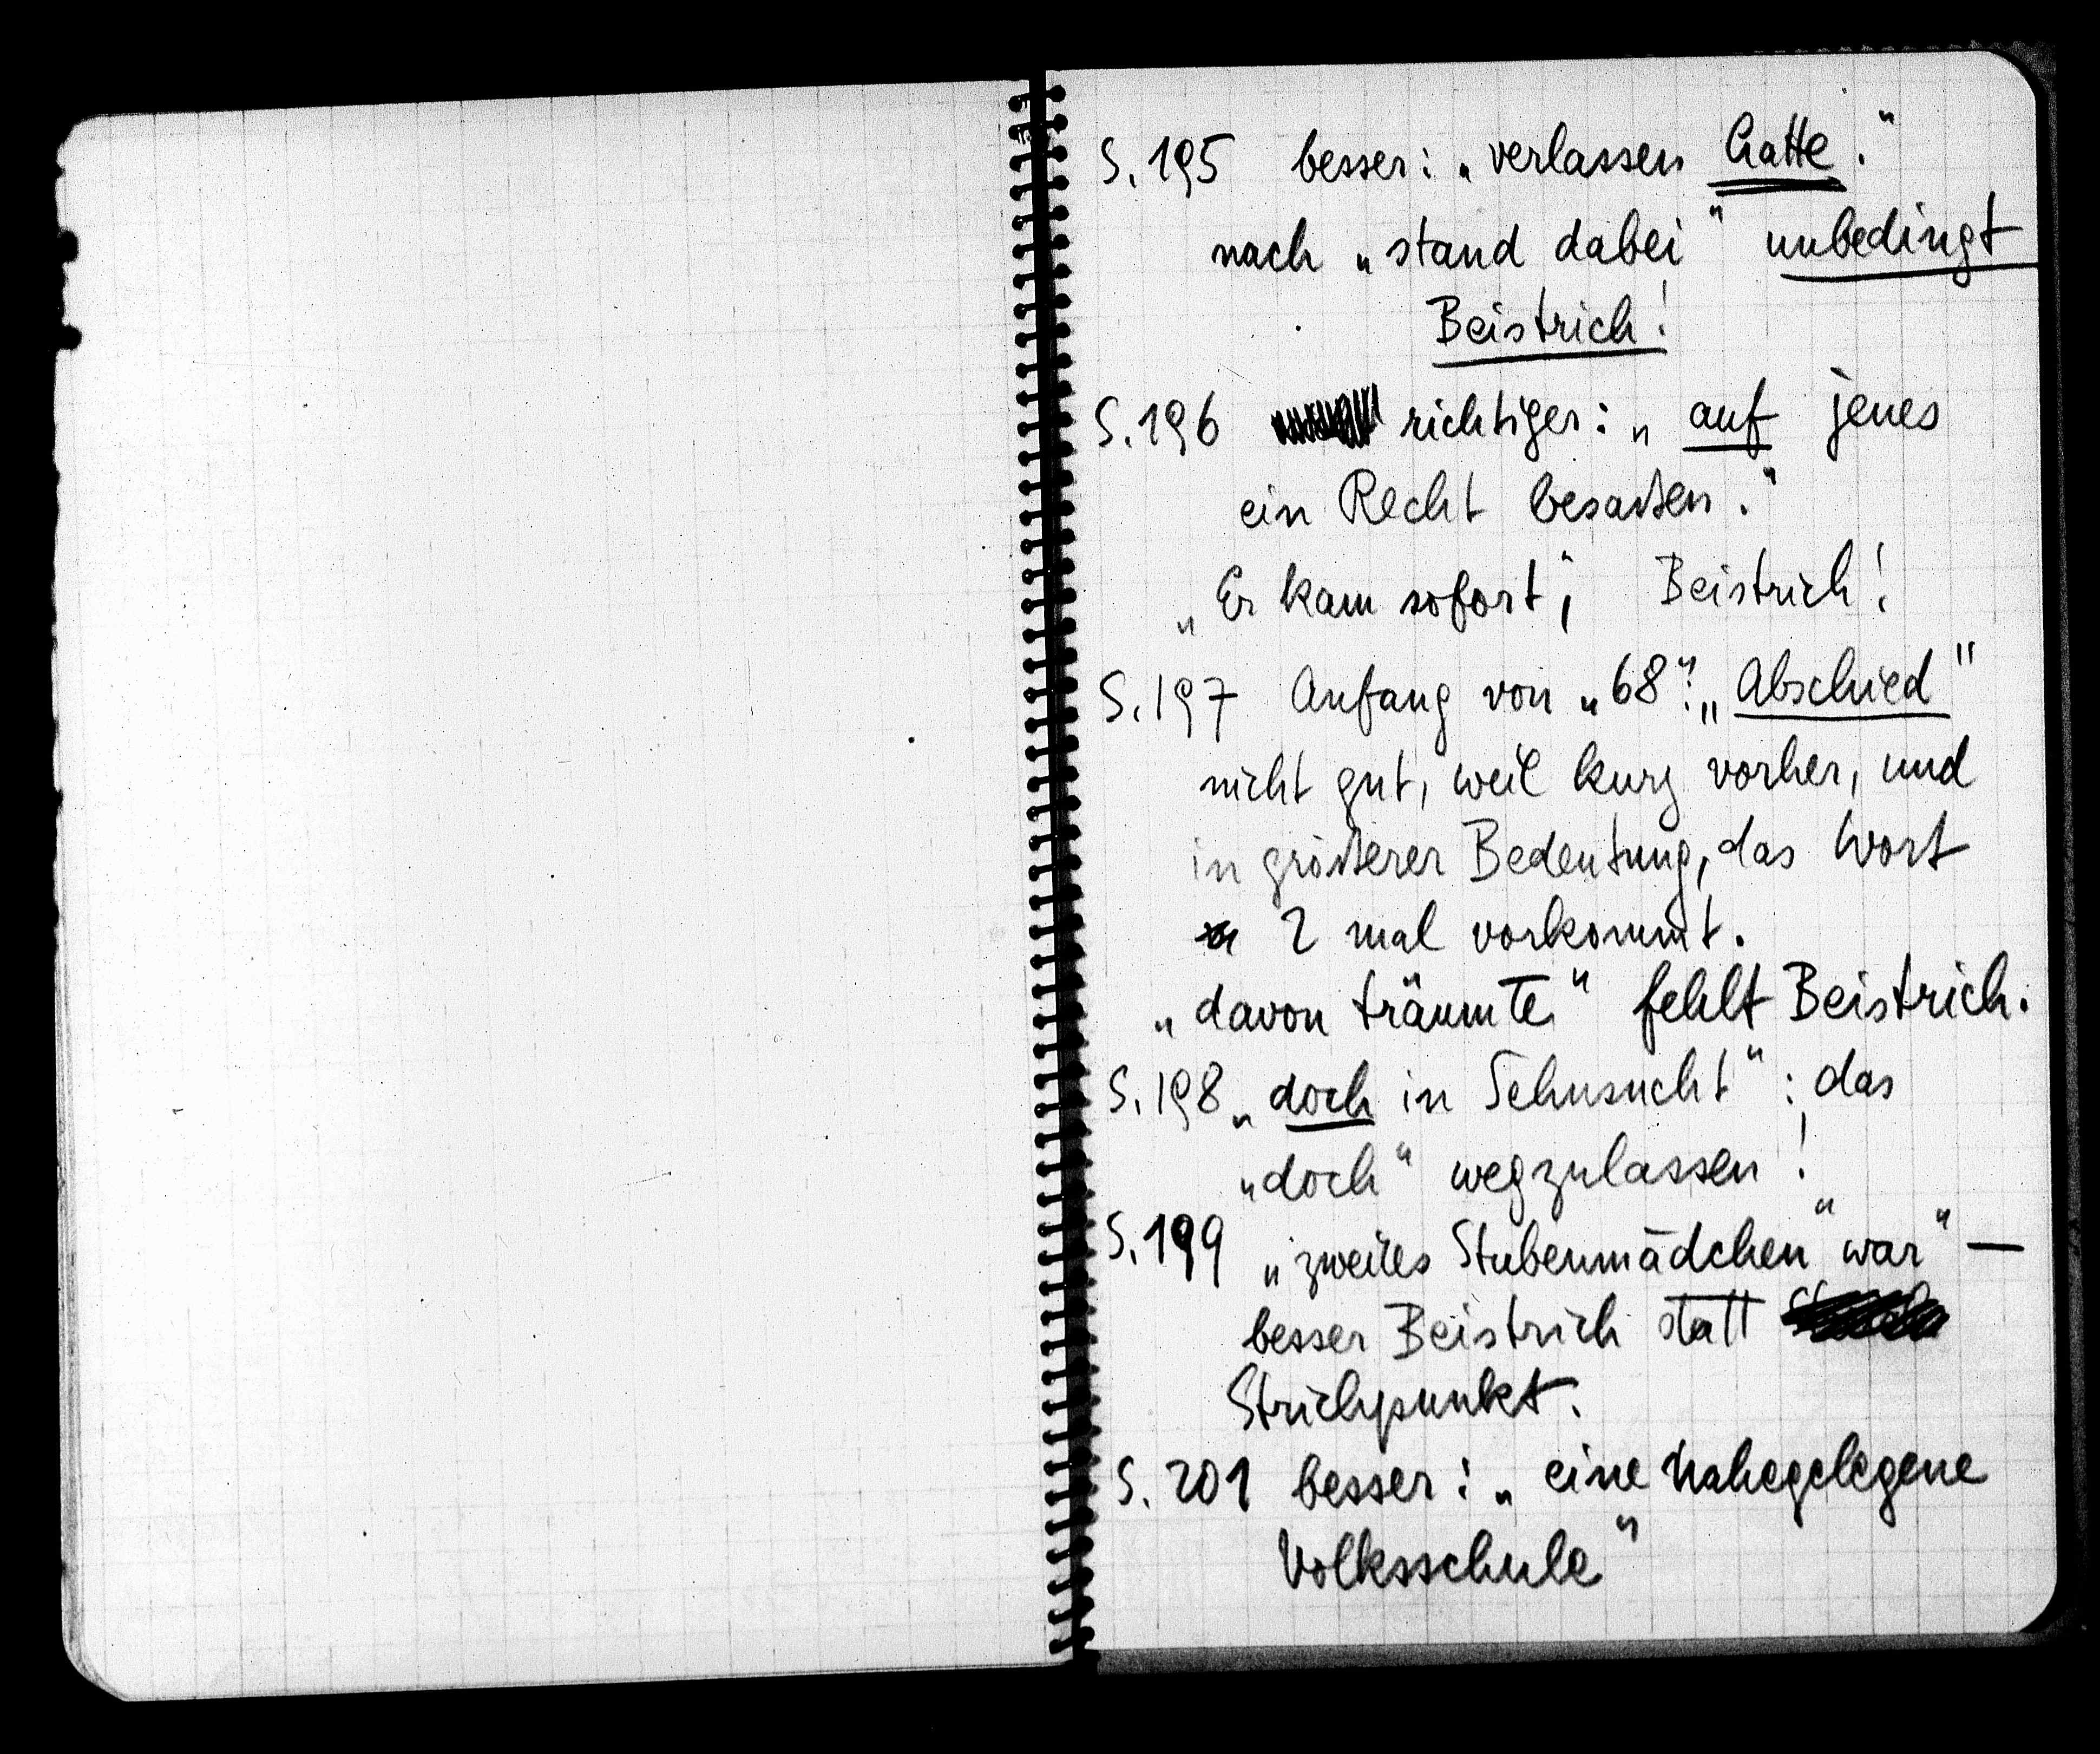 S. 195 besser: „verlassen hatte."
nach „stand dabei" unbedingt
Beistrich!
S. 196 richtiger: „auf jenes
ein Recht besaßen."
„Er kam sofort", Beistrich!
S. 197 Anfang von „68": „Abschied"
nicht gut, weil kurz vorher, und
in größerer Bedeutung, das Wort
2 mal vorkommt.
„davon träumte" fehlt Beistrich.
S. 198 „doch in Sehnsucht": das
„doch" wegzulassen!
S. 199 „zweites Stubenmädchen" war" —
besser Beistrich statt
Strichpunkt.
S. 201 besser: „eine nahegelegene
Volksschule"